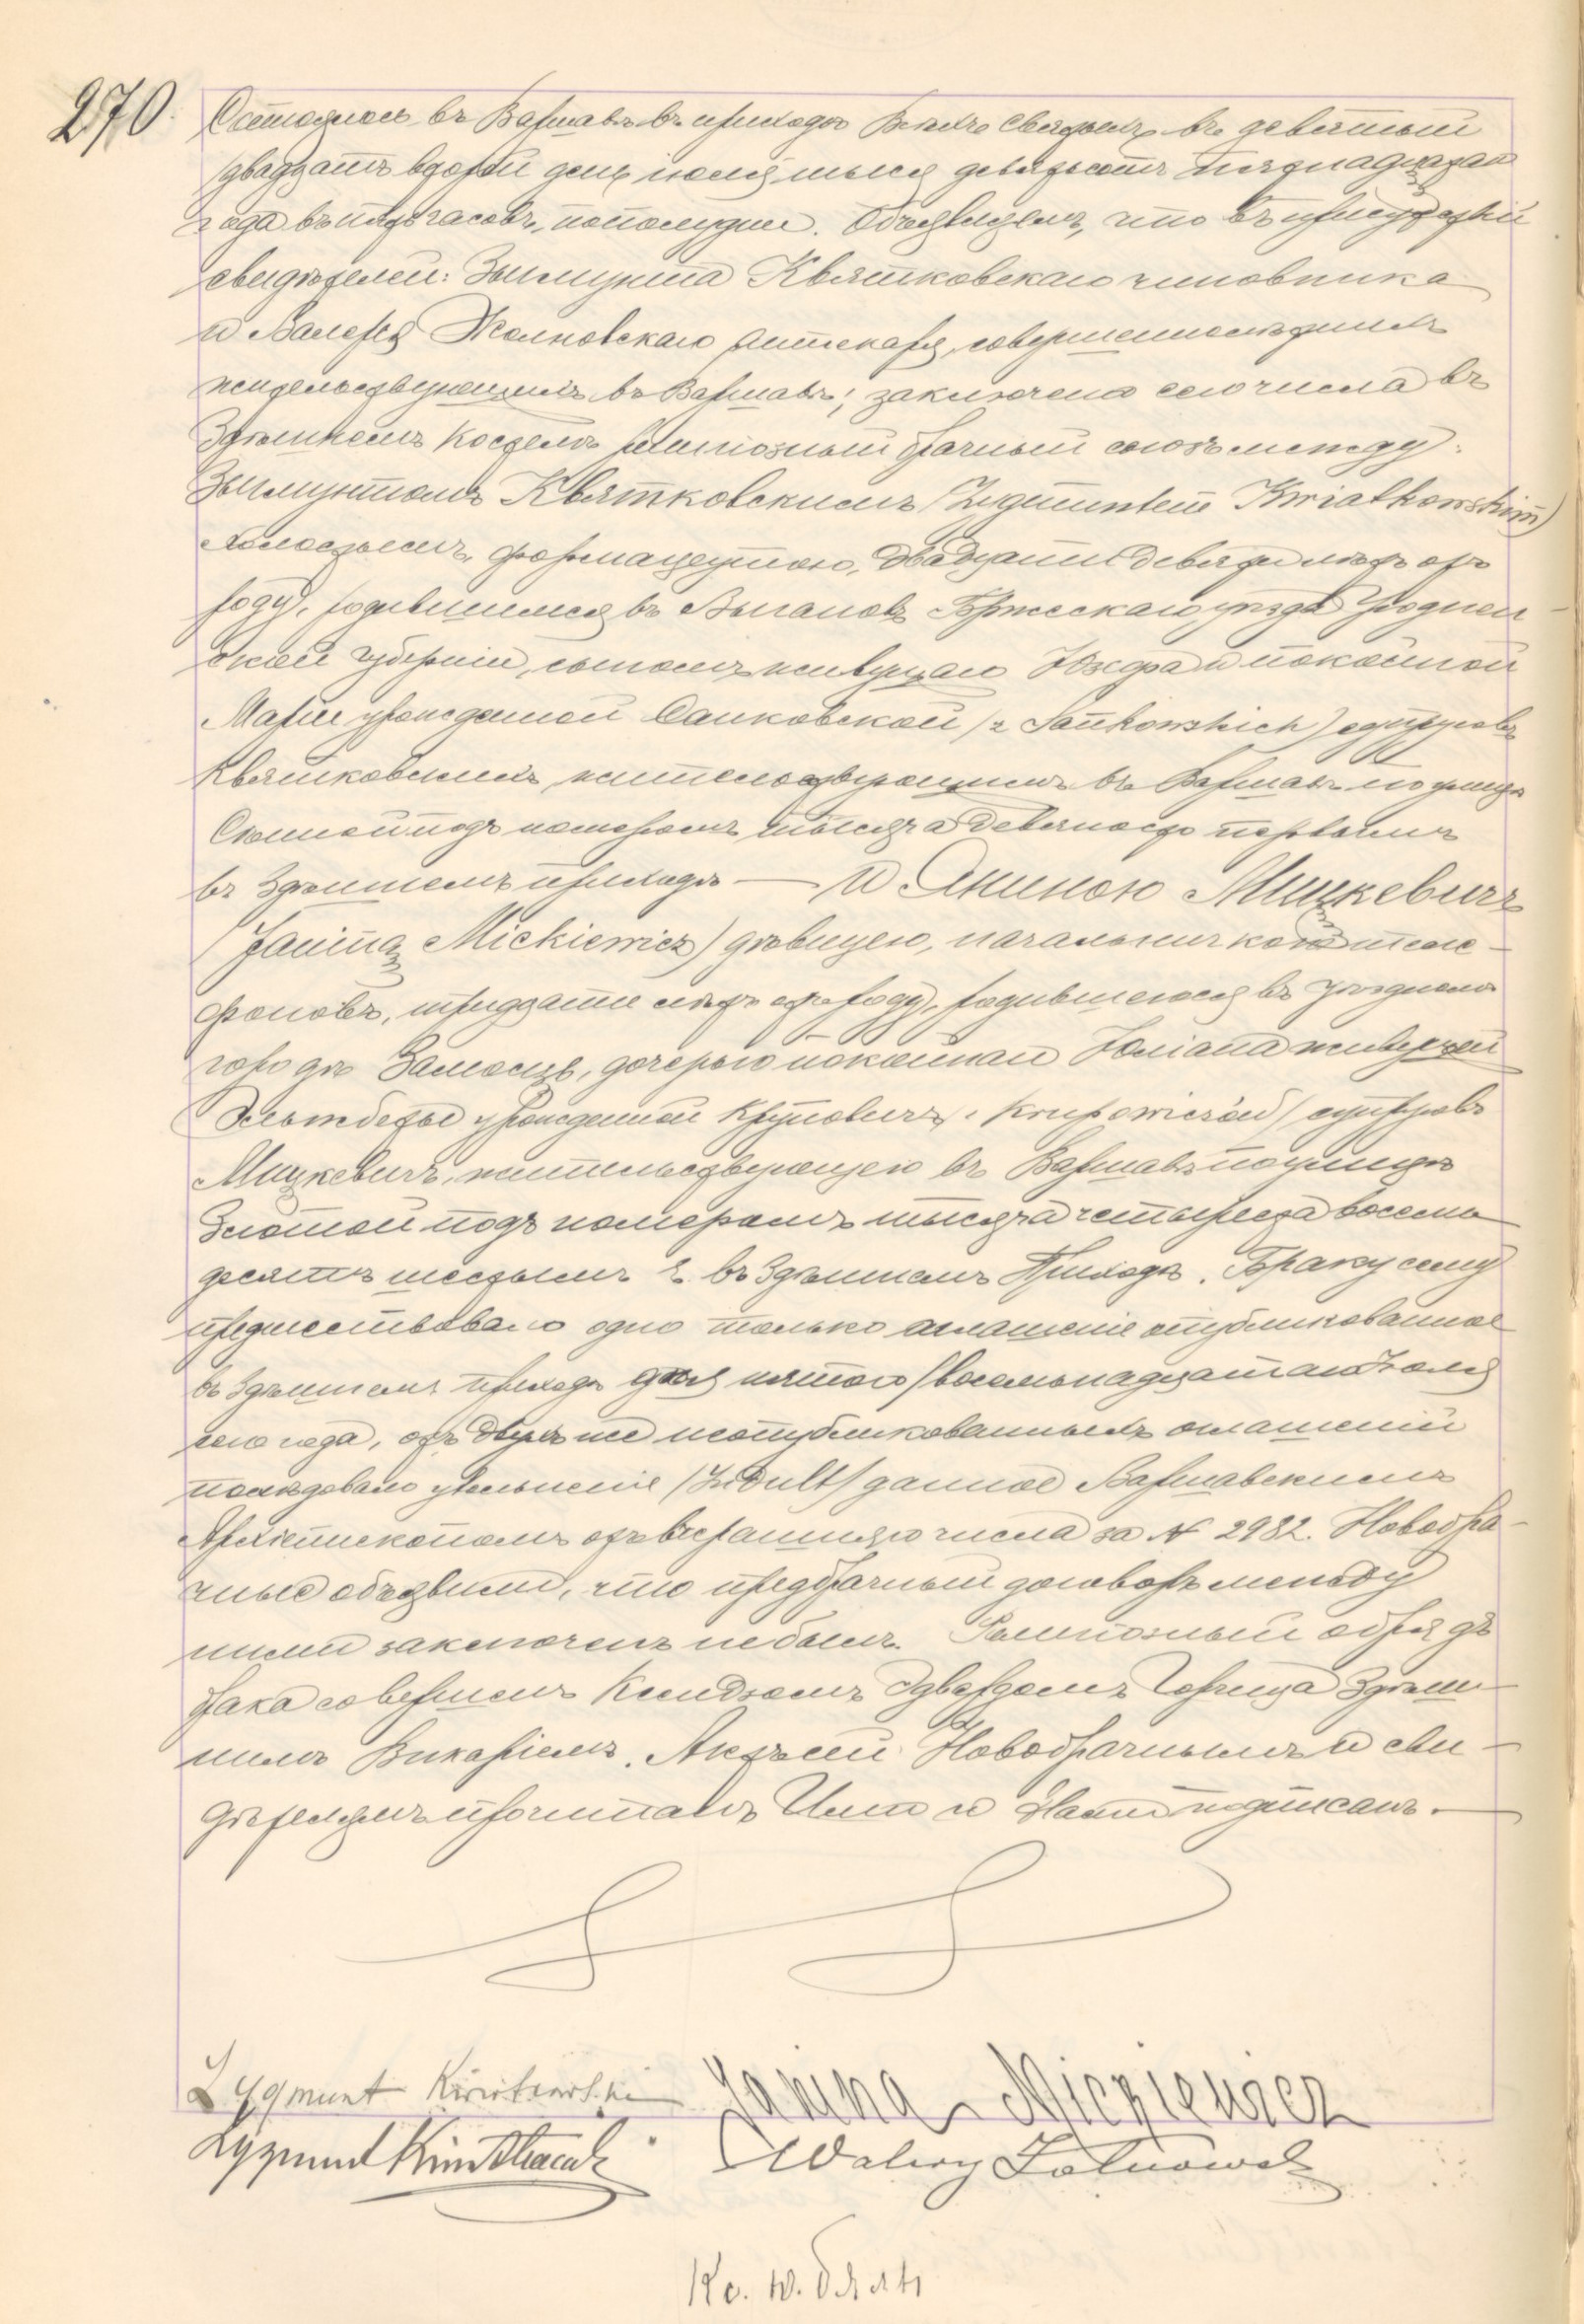 270.
Состоялось въ Варшавѣ въ приходѣ Всѣхъ Святыхъ въ девятый
/двадцать второй день іюля тысяча девятьсотъ пятнадцатаго
года въ пять часовъ пополудни. Объявляемъ, что въ присутствіи
свидѣтелей: Зыгмунта Квятковскаго чиновника
и Валерія Жолновскаго аптекаря, совершеннолѣтнихъ
жительствующихъ въ Варшавѣ; заключенъ сего числа въ
Здѣшнемъ костелѣ религіозный брачный союзъ между:
Зыгмунтомъ Квятковскимъ (Zygmuntem Kwiatkowskim)
холостымъ, фармацеутомъ, двадцати девяти лѣтъ отъ
роду, родившимся въ Бржескаго уѣзда Гроднен-
ской губерніи, сыномъ живущаго Юзефа и покойной
Маріи урожденной Санковской /z Sańkowskich/ супруговъ
Квятковскихъ, жительствующимъ въ Варшавѣ по улицѣ
подъ номеромъ тысяча девяносто первымъ
въ Здѣшнемъ приходѣ — и Яниною Мицкевичъ
(Janiną Mickiewicz) дѣвицею, начальничкою теле-
фоновъ, тридцати лѣтъ отъ роду, родившеюся въ уѣздномъ
городѣ Замосцѣ, дочерью покойнаго Юліана и живущей
Эльжбеты урожденной Круповичъ /z Krupowiczów/ супруговъ
Мицкевичъ, жительствующею въ Варшавѣ по улицѣ
Злотой подъ номеромъ тысяча четыреста восемь-
десятъ шестымъ въ Здѣшнемъ Приходѣ. Браку сему
предшествовало одно только оглашеніе опубликованное
въ Здѣшнемъ приходѣ дня пятого/восемьнадцатаго Іюля
сего года, отъ двухъ же неопубликованныхъ оглашеній
послѣдовало увольненіе /Indult/ данное Варшавскимъ
Архіепископомъ отъ вчерашняго числа за № 2982. Новобра-
чные объявили, что предбрачный договоръ между
ними заключенъ не былъ. Религіозный обрядъ
брака совершенъ Ксендзомъ Эдвардомъ Здѣш-
нимъ Викаріемъ. Актъ сей Новобрачнымъ и сви-
дѣтелямъ прочитанъ Ими и Нами подписанъ.—
Zygmunt Kwiatkowski Janina Mickiewicz
Zygmunt Kwiatkowski Walery Żołnowski
Кс.